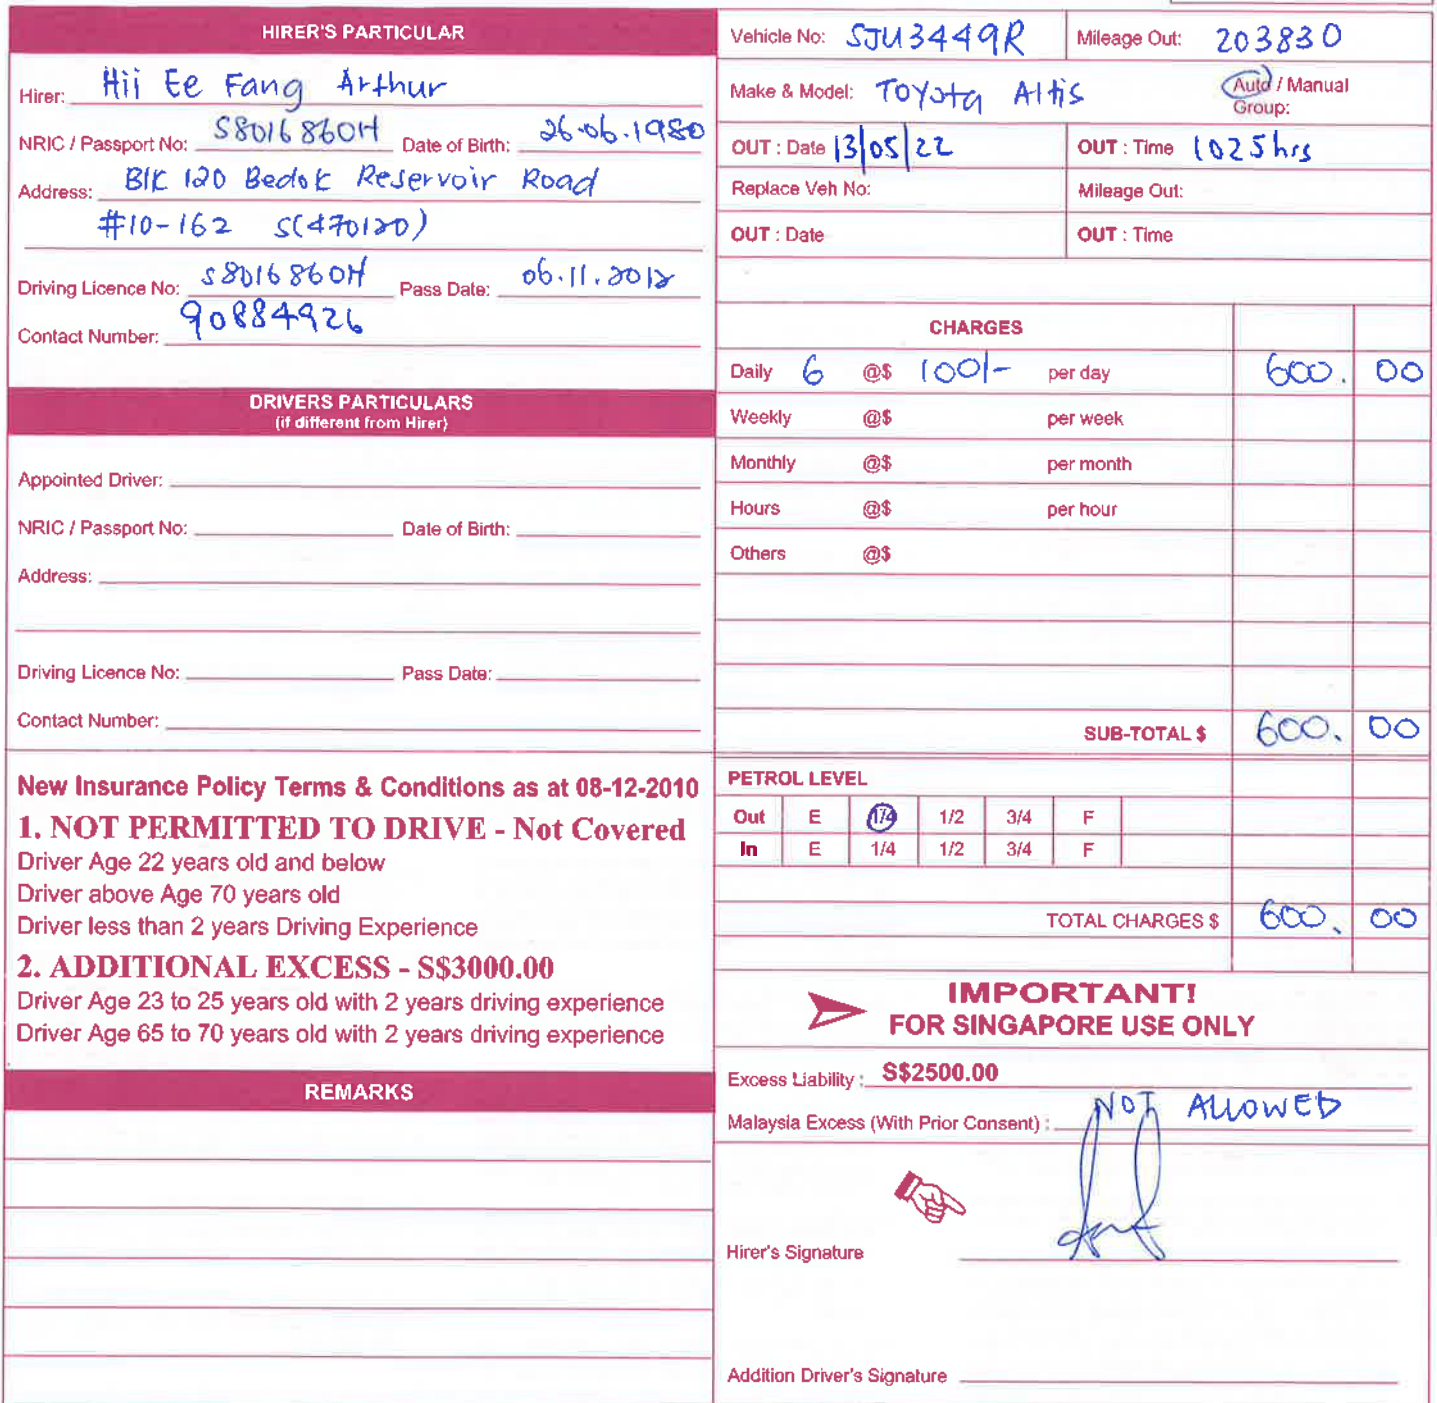 HIRER'S PARTICULAR
Hirer: Hii Ee Fang Arthur
NRIC / Passport No: S8016860H Date of Birth: 26.06.1980
Address: Blk 120 Bedok Reservoir Road
#10-162 S(470120)
Driving Licence No: S8016860H Pass Date: 06.11.2012
Contact Number: 90884926
DRIVERS PARTICULARS
(if different from Hirer)
Appointed Driver:
NRIC / Passport No: Date of Birth:
Address:
Driving Licence No: Pass Date:
Contact Number:
New Insurance Policy Terms & Conditions as at 08-12-2010
1. NOT PERMITTED TO DRIVE - Not Covered
Driver Age 22 years old and below
Driver above Age 70 years old
Driver less than 2 years Driving Experience
2. ADDITIONAL EXCESS - S$3000.00
Driver Age 23 to 25 years old with 2 years driving experience
Driver Age 65 to 70 years old with 2 years driving experience
REMARKS
Vehicle No: SJU3449R Mileage Out: 203830
Make & Model: Toyota Altis Auto / Manual
Group:
OUT : Date 13/05/22 OUT : Time 1025hrs
Replace Veh No: Mileage Out:
OUT : Date OUT : Time
CHARGES
Daily 6 @$ 100/- per day 600. 00
Weekly @$ per week
Monthly @$ per month
Hours @$ per hour
Others @$
SUB-TOTAL $ 600. 00
PETROL LEVEL
Out E 1/4 1/2 3/4 F
In E 1/4 1/2 3/4 F
TOTAL CHARGES $ 600. 00
IMPORTANT!
FOR SINGAPORE USE ONLY
Excess Liability : S$2500.00
Malaysia Excess (With Prior Consent) : NOT ALLOWED
Hirer's Signature
Addition Driver's Signature